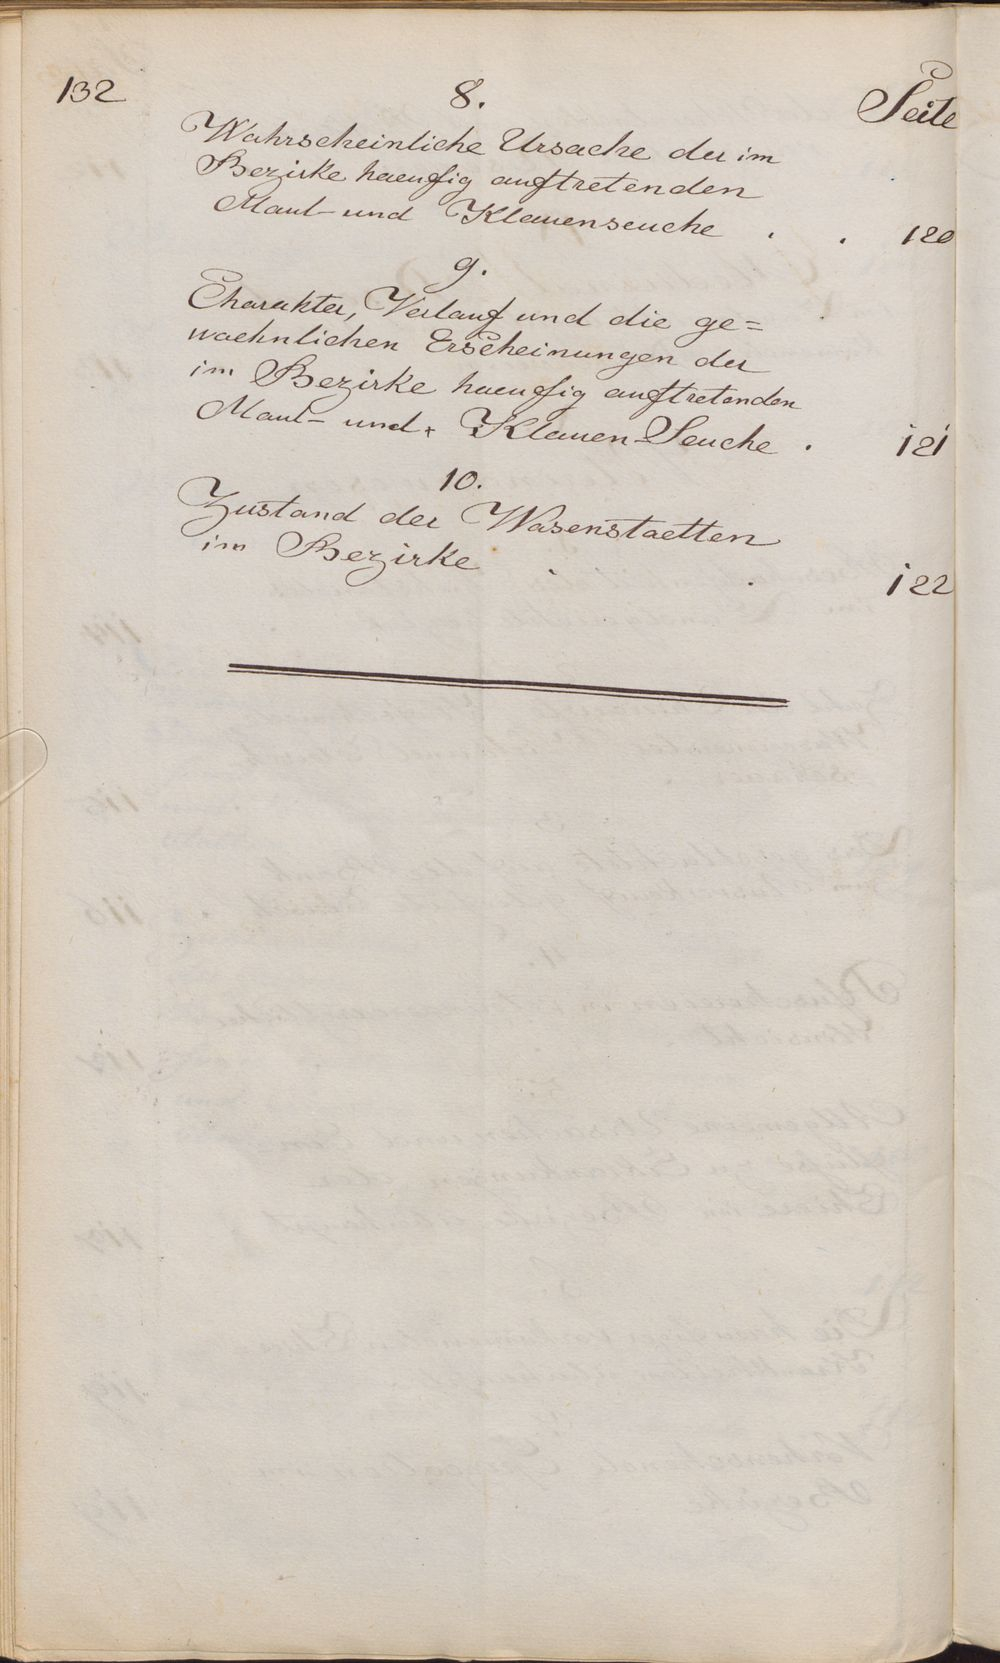 132
8.
Seite
Wahrscheinliche Ursache der im
Bezirke haeufig auftretenden
Maul- und Klauenseuche . . 120
9.
Charakter, Verlauf und die ge=
woehnlichen Erscheinungen der
im Bezirke haeufig auftretenden
Maul- und Klauen-Seuche . 121
10.
Zustand der Wasenstaetten
im Bezirke . . 122